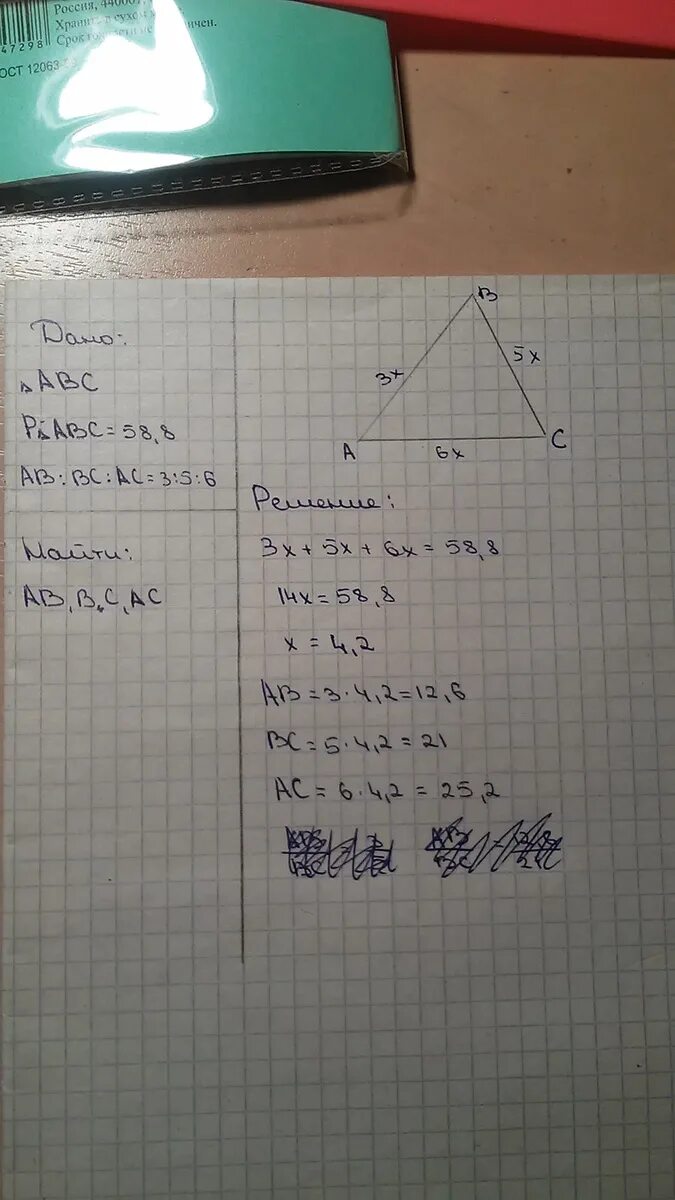 Россия, 440007,
Храни в сухом
Срок не ничен.
47298
ОСТ 12063-
Дано:
△ABC
P△ABC = 58,8
AB : BC : AC = 3:5:6
Найти:
AB, B, C, AC
B
3x
5x
A
6x
C
Решение:
3x + 5x + 6x = 58,8
14x = 58,8
x = 4,2
AB = 3 · 4,2 = 12,6
BC = 5 · 4,2 = 21
AC = 6 · 4,2 = 25,2